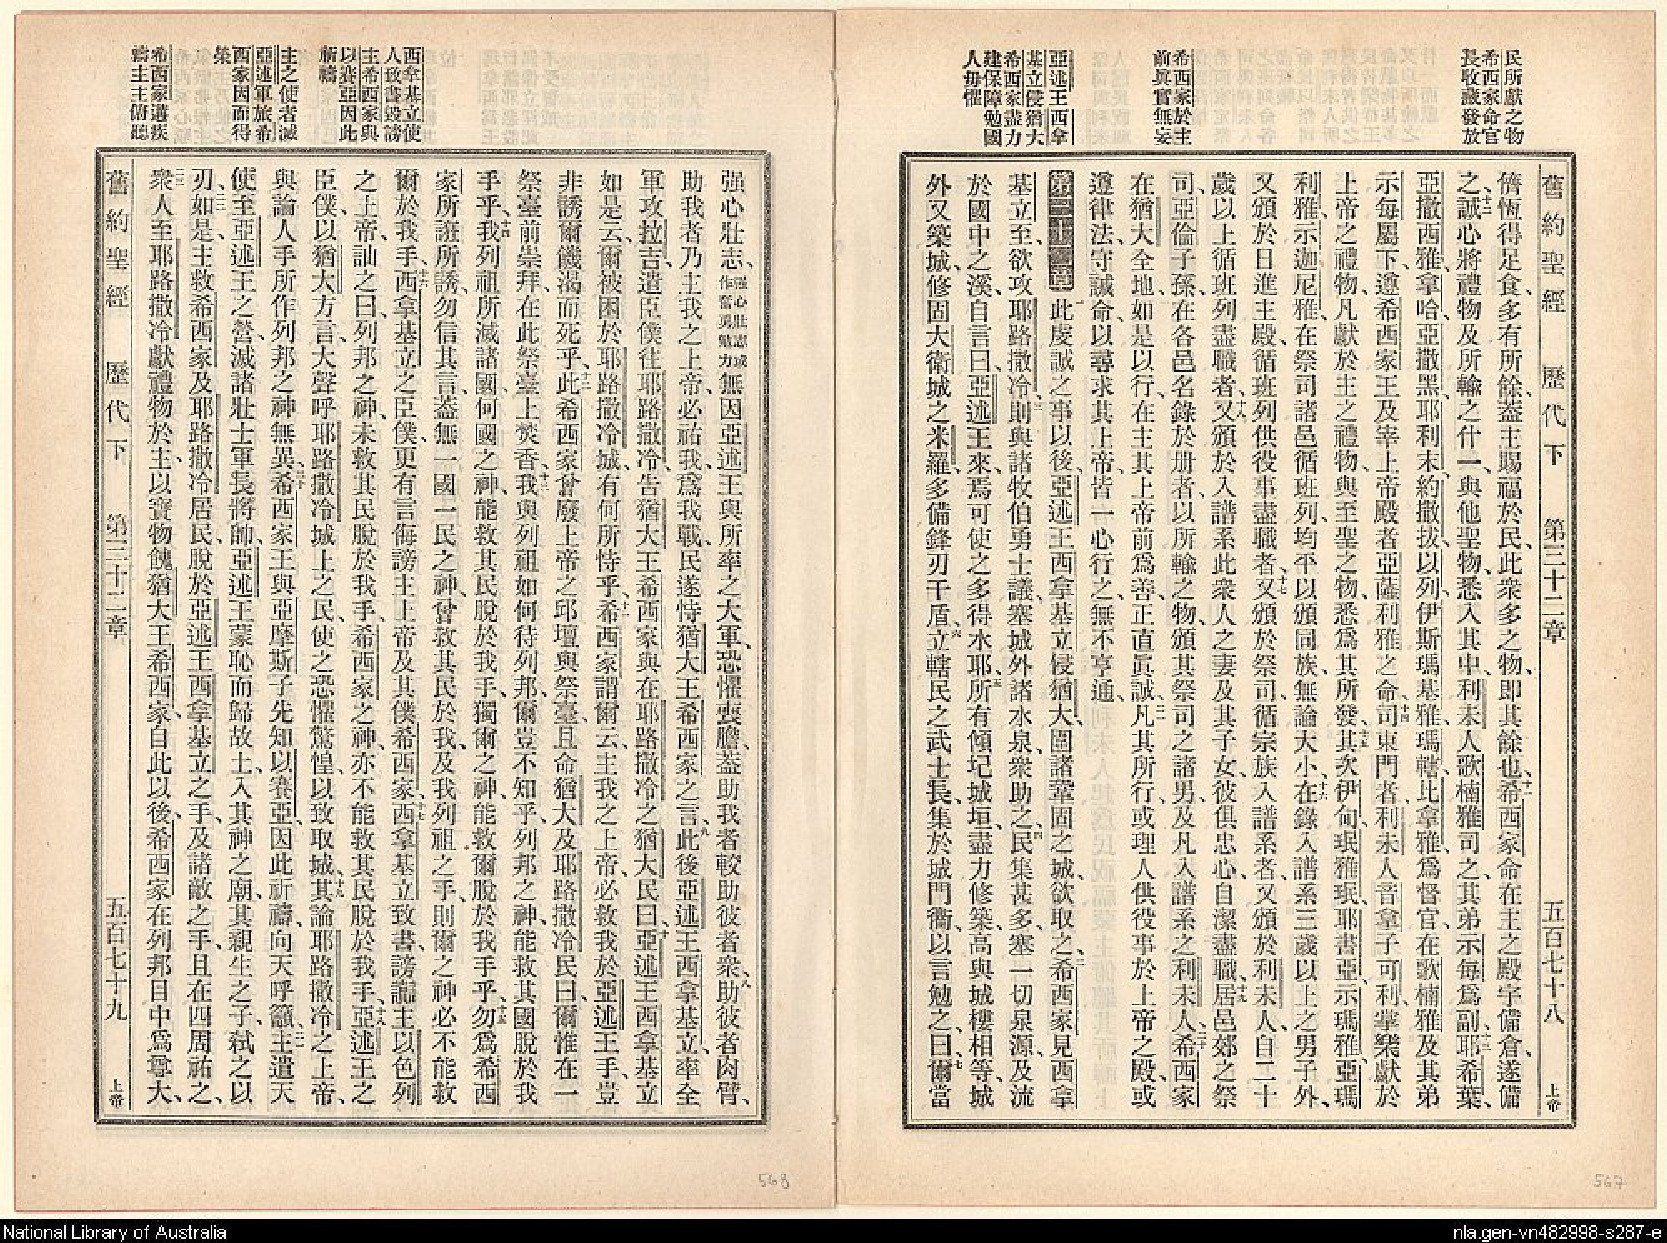 民所獻之物
希西家命官
長收藏發放
希西家於主
前眞實無妄
亞述王西拿
基立侵猶大
希西家盡力
建保障勉國
人毋懼
舊約聖經 歷代下 第三十二章 五百七十八 上帝
僧恆得足食、多有所餘、蓋主賜福於民、此衆多之物、卽其餘也、十一希西家命在主之殿宇備倉、遂備
之、十二誠心將禮物及所輸之什一、與他聖物、悉入其中、利未人歌楠雅司之、其弟示每爲副、十三耶希葉、
亞撒西雅、拿哈、亞撒黑、耶利末、約撒拔、以列、伊斯瑪基雅、瑪轄、比拿雅爲督官、在歌楠雅及其弟
示每屬下、遵希西家王及宰上帝殿者亞薩利雅之命、十四司東門者利未人音拿子可利、掌樂獻於
上帝之禮物、凡獻於主之禮物、與至聖之物、悉爲其所發、十五其次伊甸、珉雅珉、耶書亞、示瑪雅、亞瑪
利雅、示迦尼雅、在祭司諸邑、循班列、均平以頒同族、無論大小、十六在錄入譜系三歲以上之男子外、
又頒於日進主殿、循班列供役事盡職者、十七又頒於祭司、循宗族入譜系者、又頒於利未人、自二十
歲以上、循班列盡職者、十八又頒於入譜系此衆人之妻及其子女、彼俱忠心自潔盡職、十九居邑郊之祭
司、亞倫子孫、在各邑名錄於册者、以所輸之物、頒其祭司之諸男、及凡入譜系之利未人、二十希西家
在猶大全地如是以行、在主其上帝前爲善、正直眞誠、二一凡其所行、或理人供役事於上帝之殿、或
遵律法、守誡命、以尋求其上帝、皆一心行之、無不亨通、
第三十二章 一此虔誠之事以後、亞述王西拿基立侵猶大、圍諸鞏固之城、欲取之、二希西家見西拿
基立至、欲攻耶路撒冷、三則與諸牧伯勇士議、塞城外諸水泉、衆助之、四民集甚多、塞一切泉源、及流
於國中之溪、自言曰、亞述王來、焉可使之多得水耶、五所有傾圮城垣、盡力修築、高與城樓相等、城
外又築城、修固大衛城之米羅、多備鋒刃干盾、六立轄民之武士長、集於城門衢、以言勉之曰、七爾當
西拿基立使
人致書毀謗
主希西家與
以賽亞因此
祈禱
主之使者滅
亞述軍旅希
西家因而得
榮
希西家遘疾
禱主主俯聽
强心壯志、强心壯志或作奮勇勉力無因亞述王與所率之大軍、恐懼喪膽、蓋助我者較助彼者衆、八助彼者肉臂、
助我者乃主我之上帝、必祐我、爲我戰、民遂恃猶大王希西家之言、九此後亞述王西拿基立率全
軍攻拉吉、遣臣僕往耶路撒冷、告猶大王希西家、與在耶路撒冷之猶大民曰、十亞述王西拿基立
如是云、爾被困於耶路撒冷城、有何所恃乎、十一希西家謂爾云、主我之上帝、必救我於亞述王手、豈
非誘爾饑渴而死乎、十二此希西家曾廢上帝之邱壇與祭臺、且命猶大及耶路撒冷民曰、爾惟在一
祭臺前崇拜、在此祭臺上焚香、十三我與列祖如何待列邦、爾豈不知乎、列邦之神、能救其國脫於我
手乎、十四我列祖所滅諸國、何國之神、能救其民脫於我手、獨爾之神、能救爾脫於我手乎、十五勿爲希西
家所誑所誘、勿信其言、蓋無一國一民之神、曾救其民於我、及我列祖之手、則爾之神必不能救
爾於我手、十六西拿基立之臣僕、更有言侮謗主上帝及其僕希西家、十七西拿基立致書、謗讟主以色列
之上帝、訕之曰、列邦之神、未救其民脫於我手、希西家之神、亦不能救其民脫於我手、十八亞述王之
臣僕、以猶大方言、大聲呼耶路撒冷城上之民、使之恐懼驚惶、以致取城、十九其論耶路撒冷之上帝、
與論人手所作列邦之神無異、二十希西家王與亞摩斯子先知以賽亞因此祈禱、向天呼籲、二一主遣天
使至亞述王之營、滅諸壯士軍長將帥、亞述王蒙恥而歸故土、入其神之廟、其親生之子、弒之以
刃、二二如是、主救希西家、及耶路撒冷居民、脫於亞述王西拿基立之手、及諸敵之手、且在四周祐之、
二三衆人至耶路撒冷、獻禮物於主、以寶物餽猶大王希西家、自此以後、希西家在列邦目中爲尊大、
舊約聖經 歷代下 第三十二章 五百七十九 上帝
568
567
National Library of Australia
nla.gen-vn482998-s287-e